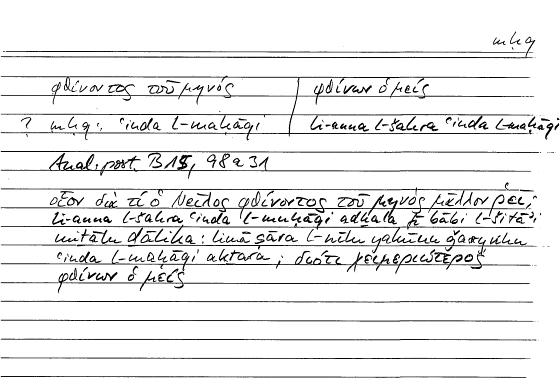 mḥq
φθίνοντος τοῦ μηνός | φθίνων ὁ μείς
? mḥq: ʿinda l-maḥāqi | li-anna l-šahra ʿinda l-maḥāqi
Anal. post. B 15, 98 a 31
οἷον διὰ τί ὁ Νεῖλος φθίνοντος τοῦ μηνὸς μᾶλλον ῥεῖ;
li-anna l-šahra ʿinda l-maḥāqi adḫala fī bābi l-šitāʾi
miṯālu ḏālika: limā ṣāra l-nīlu yakūnu ǧaryuhu
ʿinda l-maḥāqi akṯara; διότι χειμεριώτερος
φθίνων ὁ μείς